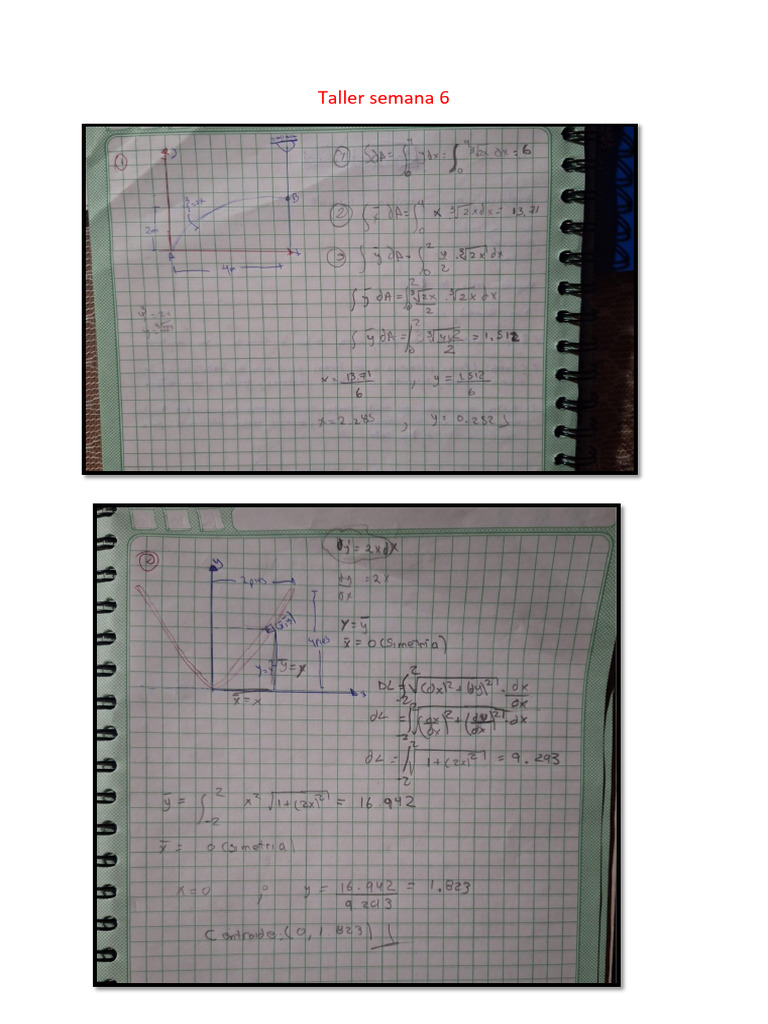 Taller semana 6
①
y
① ∫dA = ∫₀⁴ ydx = ∫₀⁴ ³√2x dx = 6
B
2m
② ∫ x̄ dA = ∫₀⁴ x ³√2x dx = 13.71
A
4m
③ ∫ ȳ dA = ∫₀² y/2 · ³√2x dx
∫ ȳ dA = ∫₀² ³√2x/2 · ³√2x dx
∫ ȳ dA = ∫₀² ³√4x²/2 = 1.512
x = 13.71/6 , y = 1.512/6
x = 2.285 , y = 0.252
②
y
dy = 2xdx
2pies
dy/dx = 2x
Y = ȳ
4pies
x̄ = 0 (Simetria)
x̄ = x
x
DL = ∫₋₂² √(dx)² + (dy)² · dx/dx
dL = ∫₋₂² √(dx/dx)² + (dy/dx)² · dx
dL = ∫₋₂² √1 + (2x)² = 9.293
ȳ = ∫₋₂² x² √1 + (2x)² = 16.942
x̄ = 0 (Simetria)
x = 0 ; y = 16.942/9.293 = 1.823
Centroide: (0, 1.823)